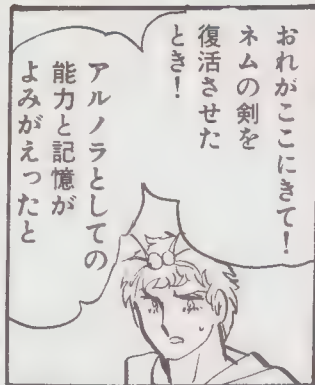 おれがここにきて！
ネムの剣を
復活させた
とき！
アルノラとしての
能力と記憶が
よみがえったと